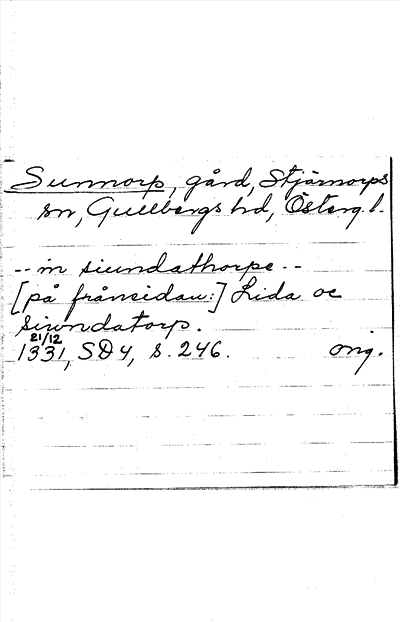 Sunnorp, gård, Stjärnorps
sn, Gullbergs hd, Österg. l.
-- in siundathorpe --
[på frånsidan:] Lida oc
Siwndatorp.
21/12
1331, SD 4, s. 246. orig.